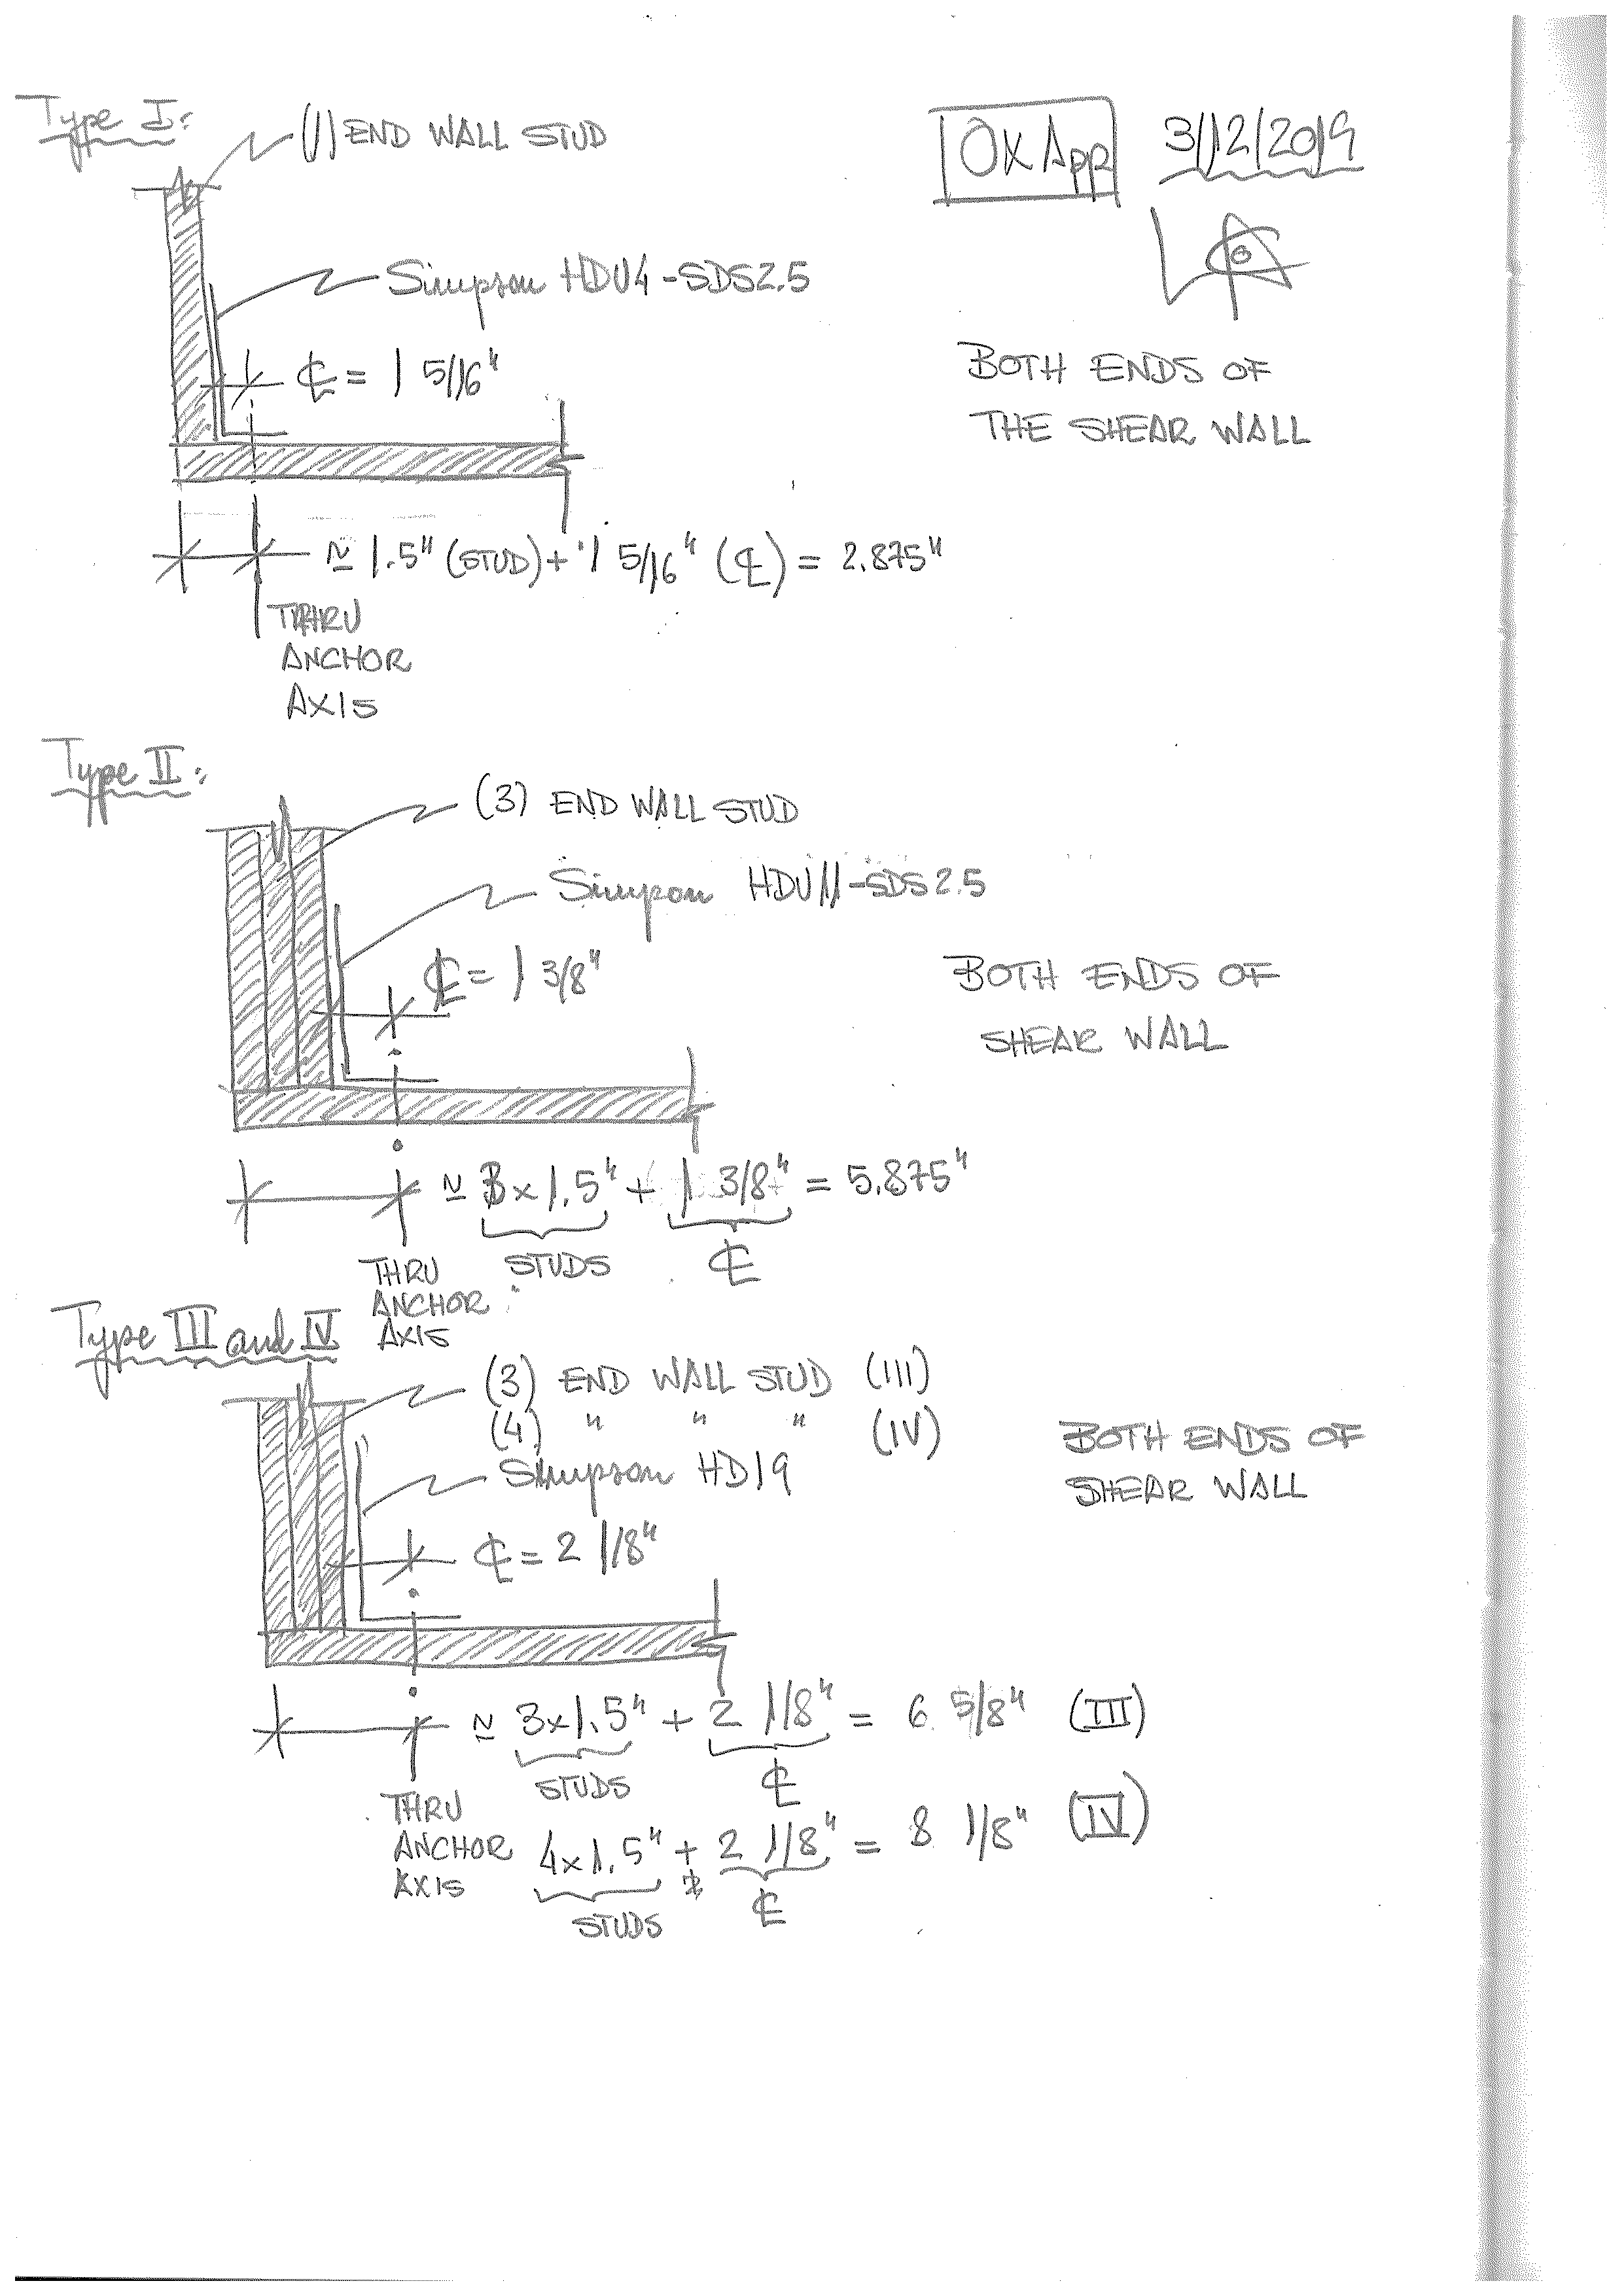 Type I:
(1) END WALL STUD
OK App 3/12/2019
Simpson HDU4-SDS2.5
℄ = 1 5/16"
BOTH ENDS OF
THE SHEAR WALL
≃ 1.5" (STUD) + 1 5/16" (℄) = 2.875"
THRU
ANCHOR
AXIS
Type II:
(3) END WALL STUD
Simpson HDU11-SDS2.5
℄ = 1 3/8"
BOTH ENDS OF
SHEAR WALL
≃ 3x1.5" + 1 3/8" = 5.875"
STUDS ℄
THRU
ANCHOR
AXIS
Type III and IV
(3) END WALL STUD (III)
(4) " " " (IV)
Simpson HD19
BOTH ENDS OF
SHEAR WALL
℄ = 2 1/8"
≃ 3x1.5" + 2 1/8" = 6 5/8" (III)
STUDS ℄
THRU
ANCHOR
AXIS
4x1.5" + 2 1/8" = 8 1/8" (IV)
STUDS ℄